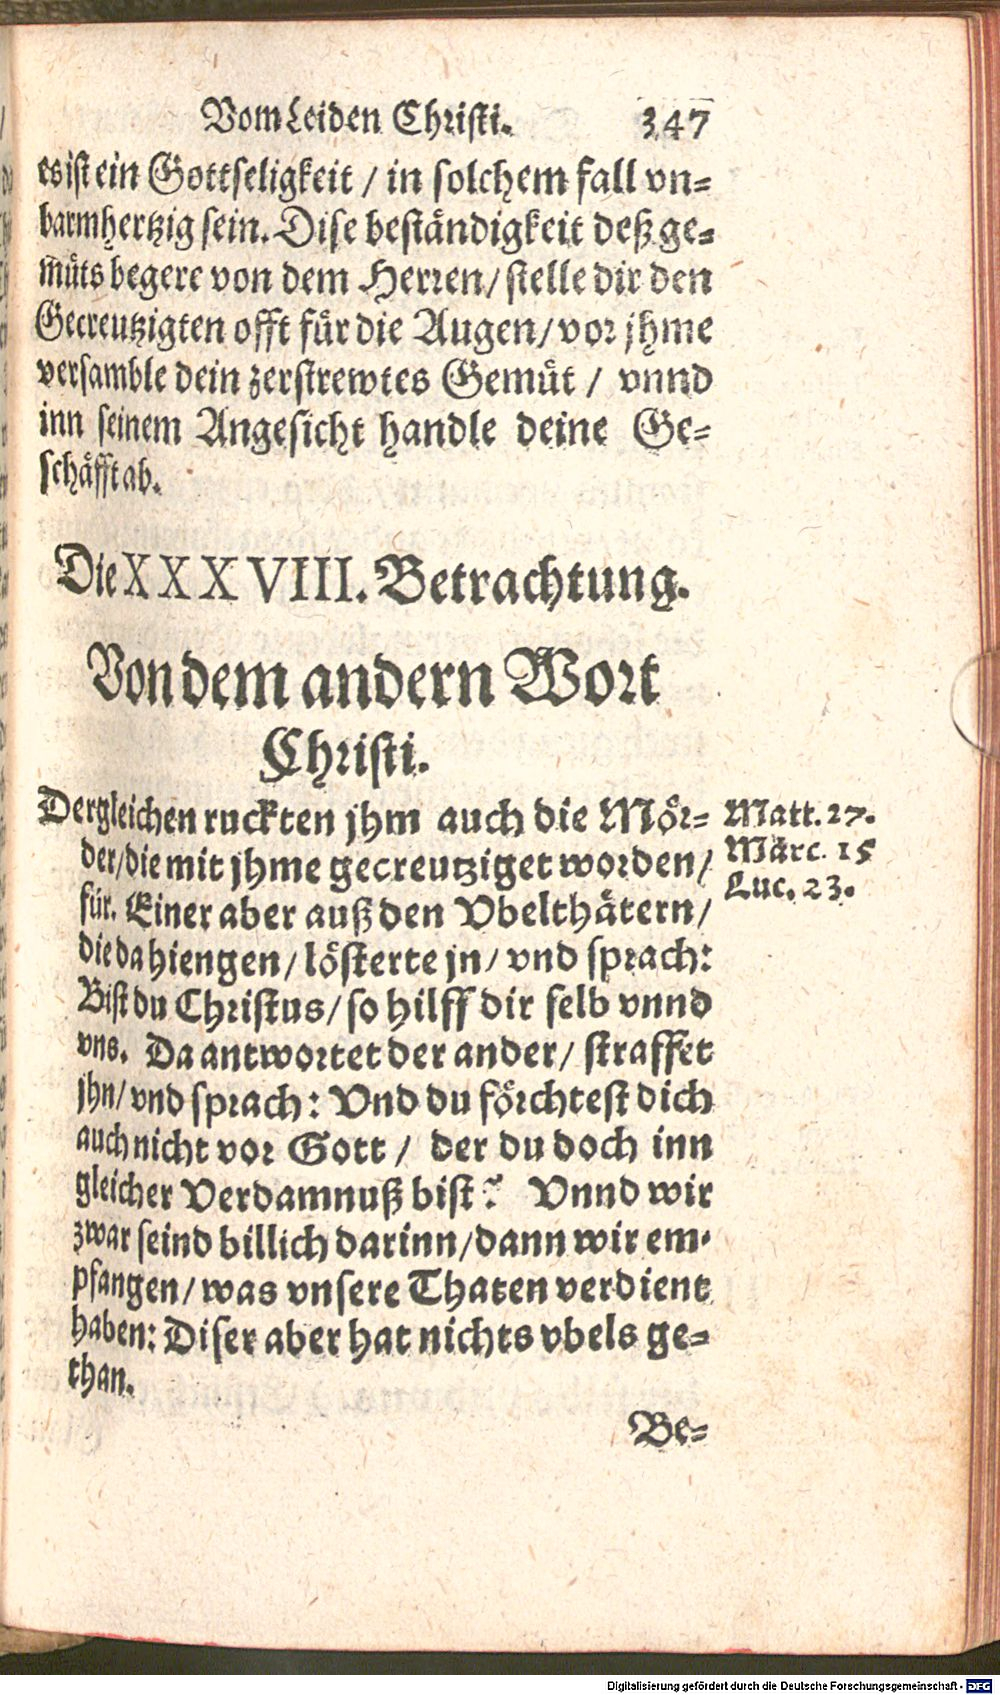 Vom Leiden Christi. 347
es ist ein Gottseligkeit / in solchem fall vn=
barmhertzig sein. Dise beständigkeit deß ge=
müts begere von dem Herren/ stelle dir den
Gecreutzigten offt für die Augen/ vor jhme
versamble dein zerstrewtes Gemüt / vnnd
inn seinem Angesicht handle deine Ge=
schäfft ab.
Die XXXVIII. Betrachtung.
Von dem andern Wort
Christi.
Dergleichen ruckten jhm auch die Mör=
der/ die mit jhme gecreutziget worden/
für. Einer aber auß den Vbelthätern/
die da hiengen/ lösterte jn/ vnd sprach:
Bist du Christus/ so hilff dir selb vnnd
vns. Da antwortet der ander/ straffet
jhn/ vnd sprach: Vnd du förchtest dich
auch nicht vor Gott / der du doch inn
gleicher Verdamnuß bist? Vnnd wir
zwar seind billich darinn/ dann wir em=
pfangen/ was vnsere Thaten verdient
haben: Diser aber hat nichts vbels ge=
than.
Matt. 27.
Marc. 15
Luc. 23.
Be=
Digitalisierung gefördert durch die Deutsche Forschungsgemeinschaft - DFG